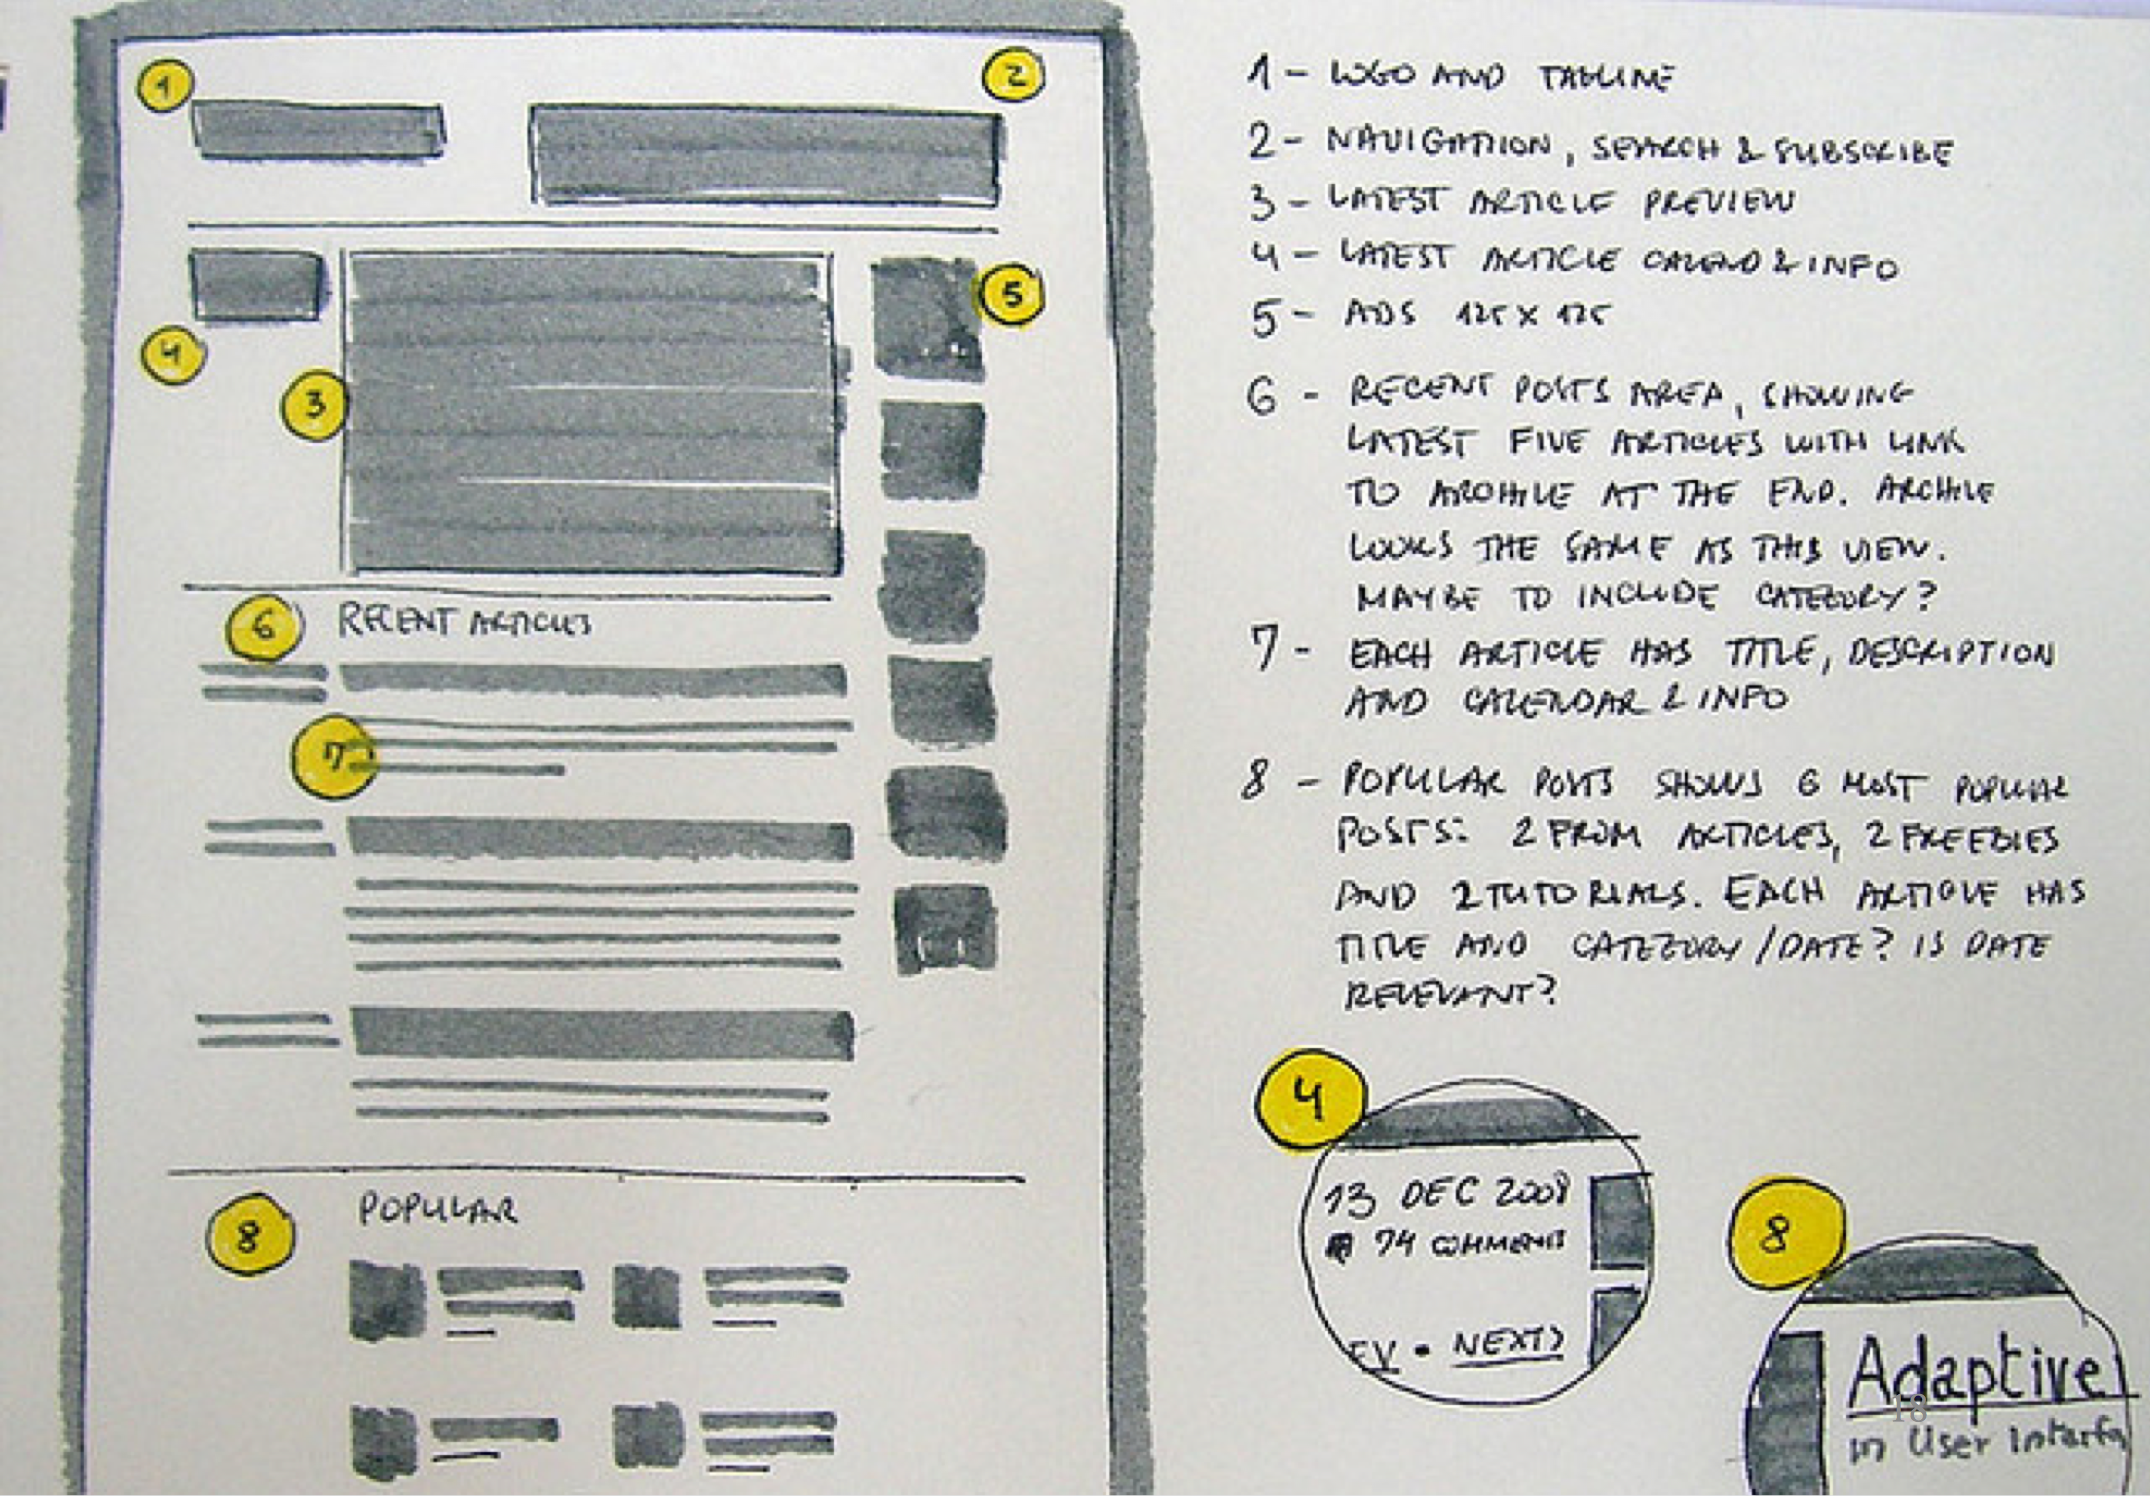 1
2
5
4
3
6 RECENT ARTICLES
7
8 POPULAR
1 - LOGO AND TAGLINE
2 - NAVIGATION, SEARCH & SUBSCRIBE
3 - LATEST ARTICLE PREVIEW
4 - LATEST ARTICLE CALEND & INFO
5 - ADS 125 X 125
6 - RECENT POSTS AREA, SHOWING
LATEST FIVE ARTICLES WITH LINK
TO ARCHIVE AT THE END. ARCHIVE
LOOKS THE SAME AS THIS VIEW.
MAYBE TO INCLUDE CATEGORY?
7 - EACH ARTICLE HAS TITLE, DESCRIPTION
AND CALENDAR & INFO
8 - POPULAR POSTS SHOWS 6 MOST POPULAR
POSTS: 2 FROM ARTICLES, 2 FREEBIES
AND 2 TUTORIALS. EACH ARTICLE HAS
TITLE AND CATEGORY/DATE? IS DATE
RELEVANT?
4
13 DEC 2008
74 COMMENTS
EV • NEXT>
8
Adaptive
in User Interfa
18